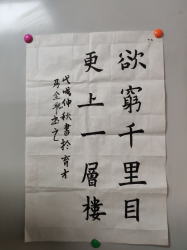 欲窮千里目
更上一層樓
戊戌仲秋書於育才